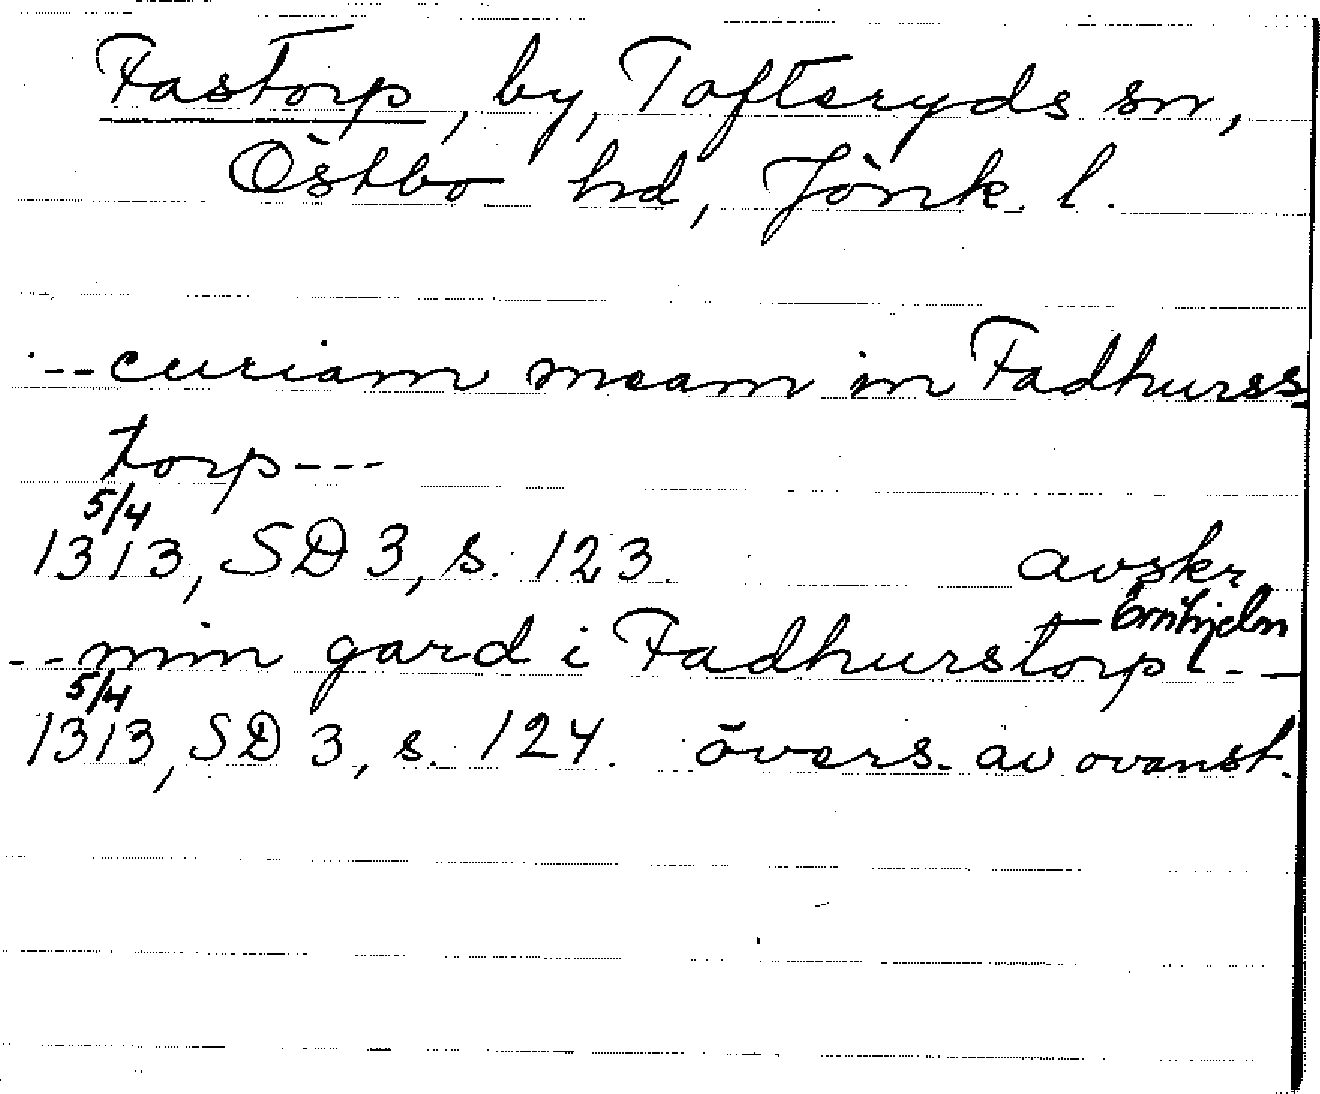 Fastorp, by, Tofteryds sn,
Östbo hd, Jönk. l.
---curiam meam in Fadhurss-
torp---
5/4
1313, SD 3, s. 123. avskr
Örnhjelm
--min gard i Fadhurstorp---
5/4
1313, SD 3, s. 124. övers. av ovanst.